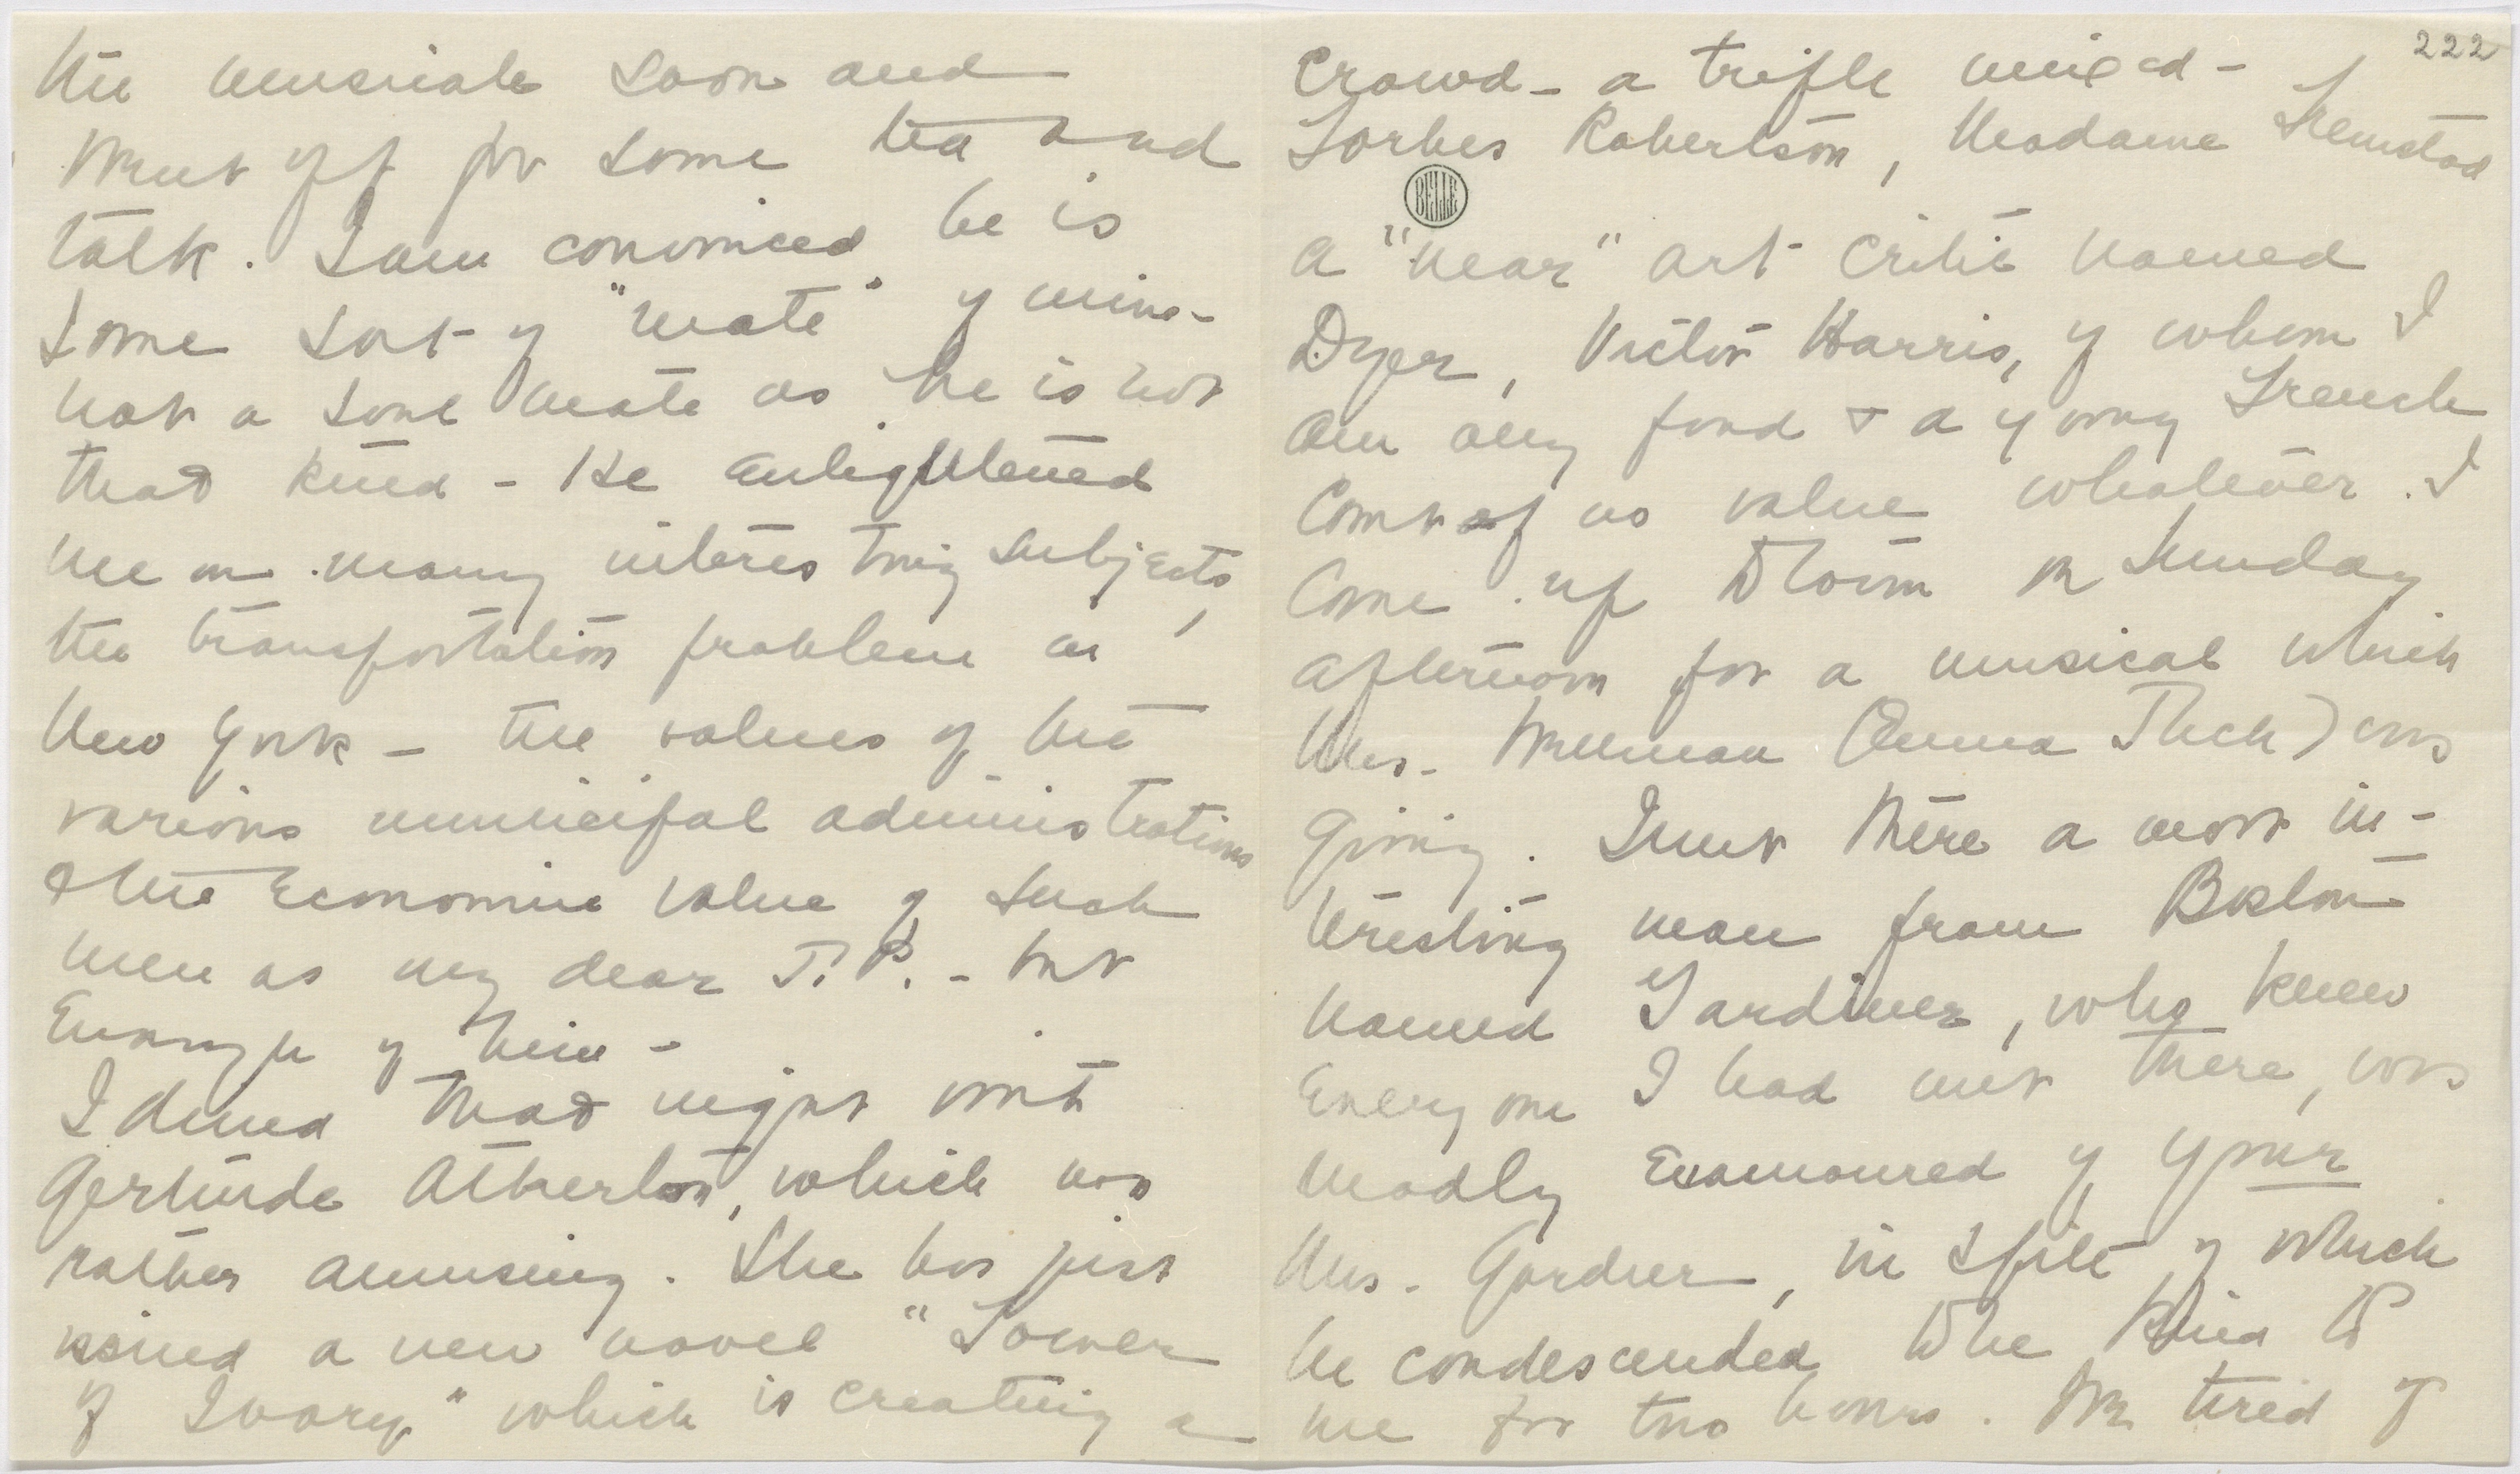 the musicale soon and
went off for some tea and
talk. I am convinced he is
some sort of "mate" of mine -
not a soul mate as he is not
that kind - He enlightened
me on many interesting subjects,
the transportation problem in
New York - the values of the
various municipal administrations
& the economic value of such
men as my dear J.P. - but
enough of him -
I dined that night with
Gertrude Atherton, which was
rather amusing. She has just
issued a new novel "Tower
of Ivory" which is creating a
222
crowd - a trifle mixed -
Forbes Robertson, Madame Fremstad
BELLE
a "near" art critic named
Dyer, Victor Harris, of whom I
am very fond & a young French
Comte of no value whatever. I
came up to town on Sunday
afternoon for a musical which
Mrs. Wellman (Emma Juch) was
giving. I met there a most in-
teresting man from Boston
named Gardiner, who knew
everyone I had met there, was
madly enamoured of your
Mrs. Gardner, in spite of which
he condescended to be kind to
me for two hours. We tired of